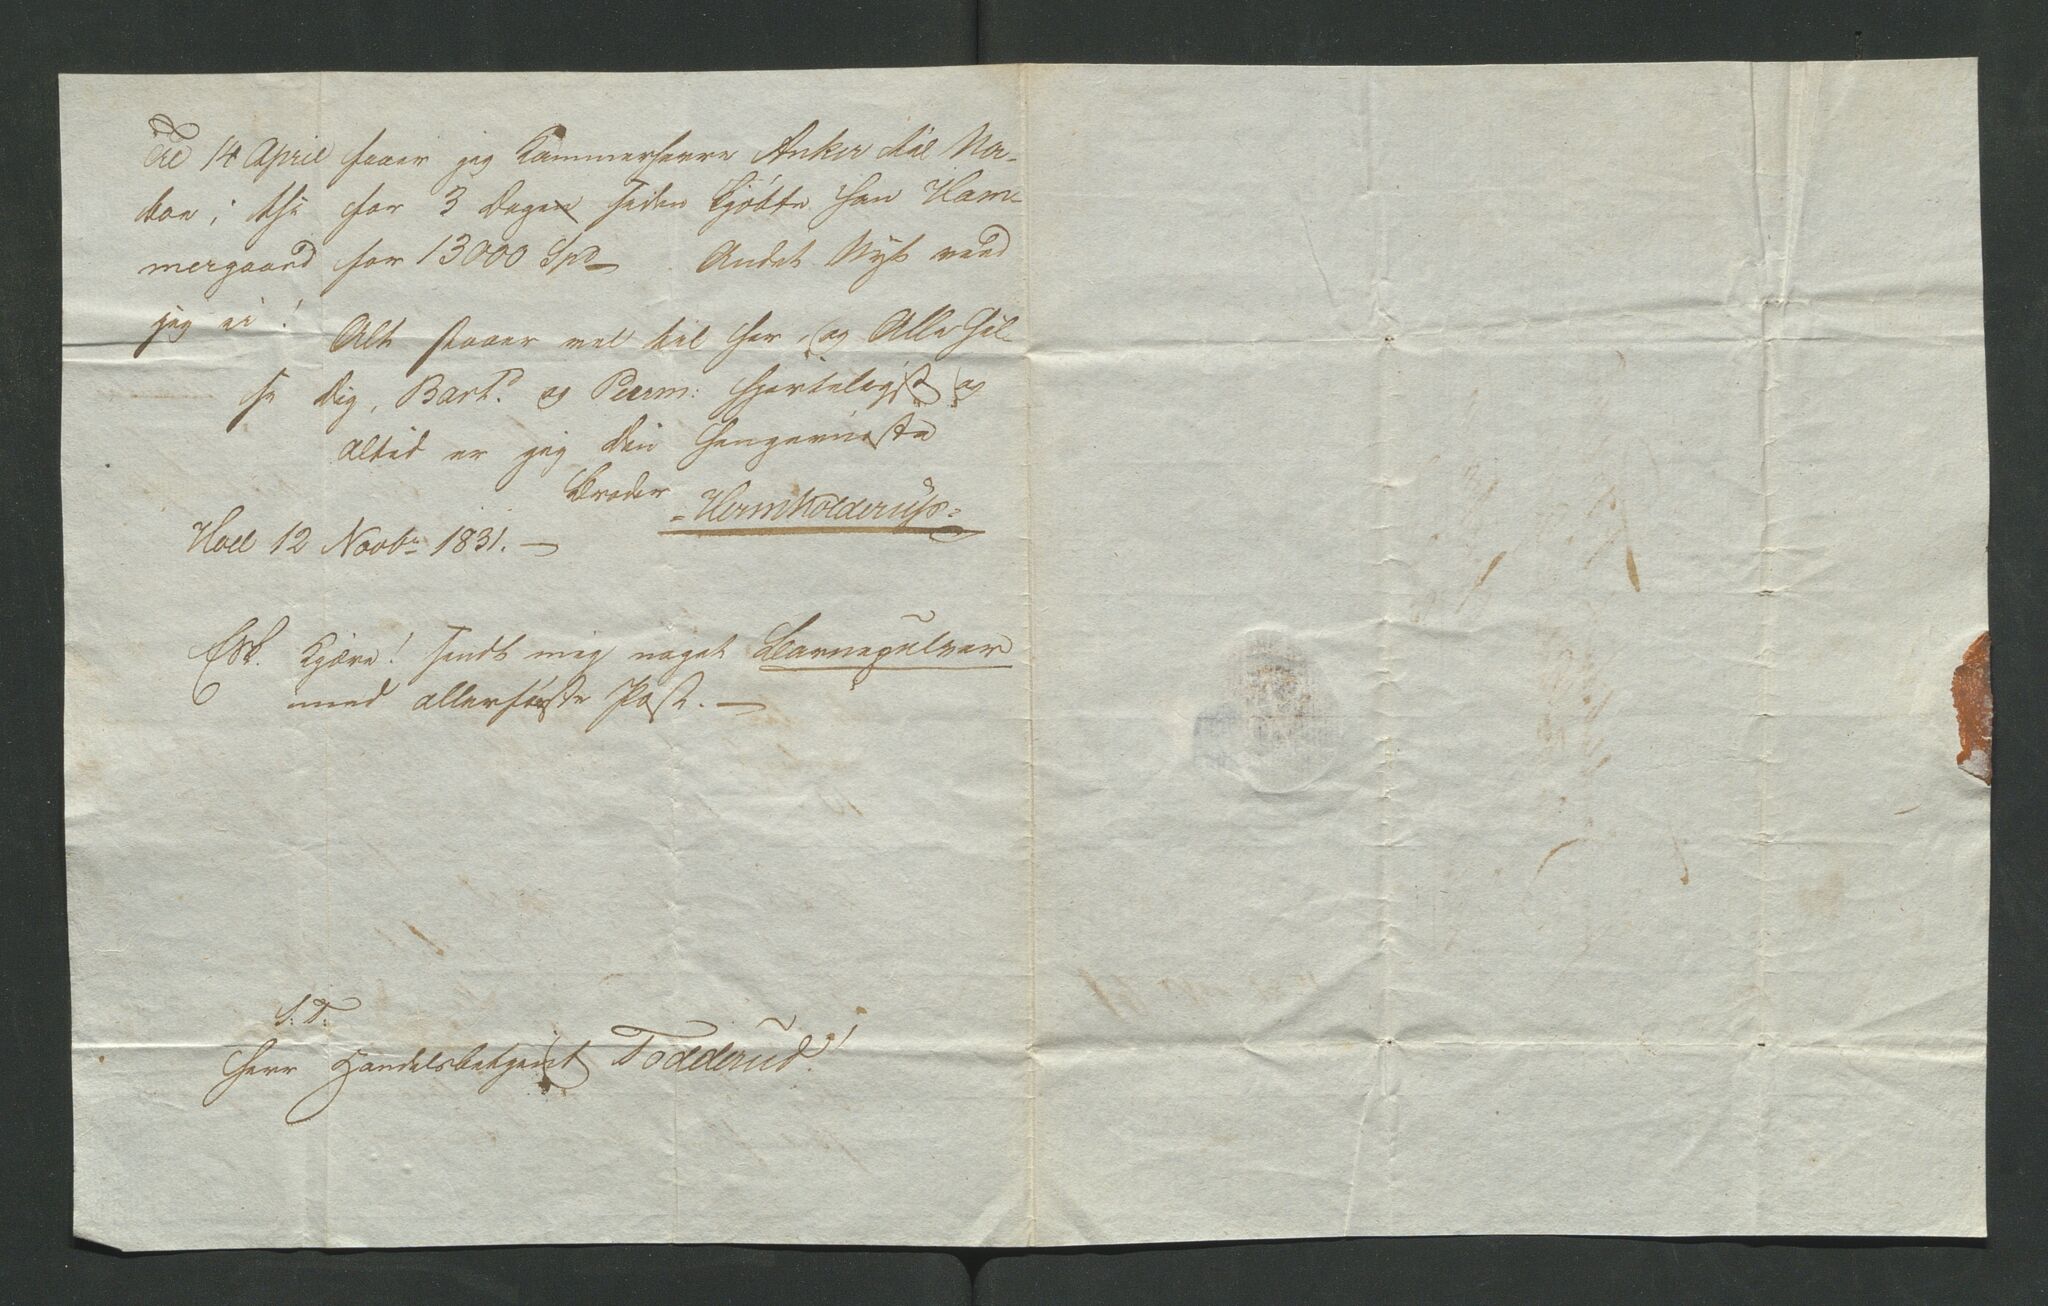 Til 14 April faaer jeg Kammerherre Anker til Na-
boe; thi for 3 Dage siden kjøbte han Ham-
mergaard for 13000 Spd Andet Nyt veed
jeg ei!
Alt staaer vel til her, og Alle hil-
se Dig, Bart. og Peerm: hjerteligst og
altid er jeg din hengivneste
Broder
Hoel 12 Novbr 1831.
Kjære! sendt mig noget Barnepulver
med allerførste Post.
S. T.
Herr Handelsbetjent Todderud!